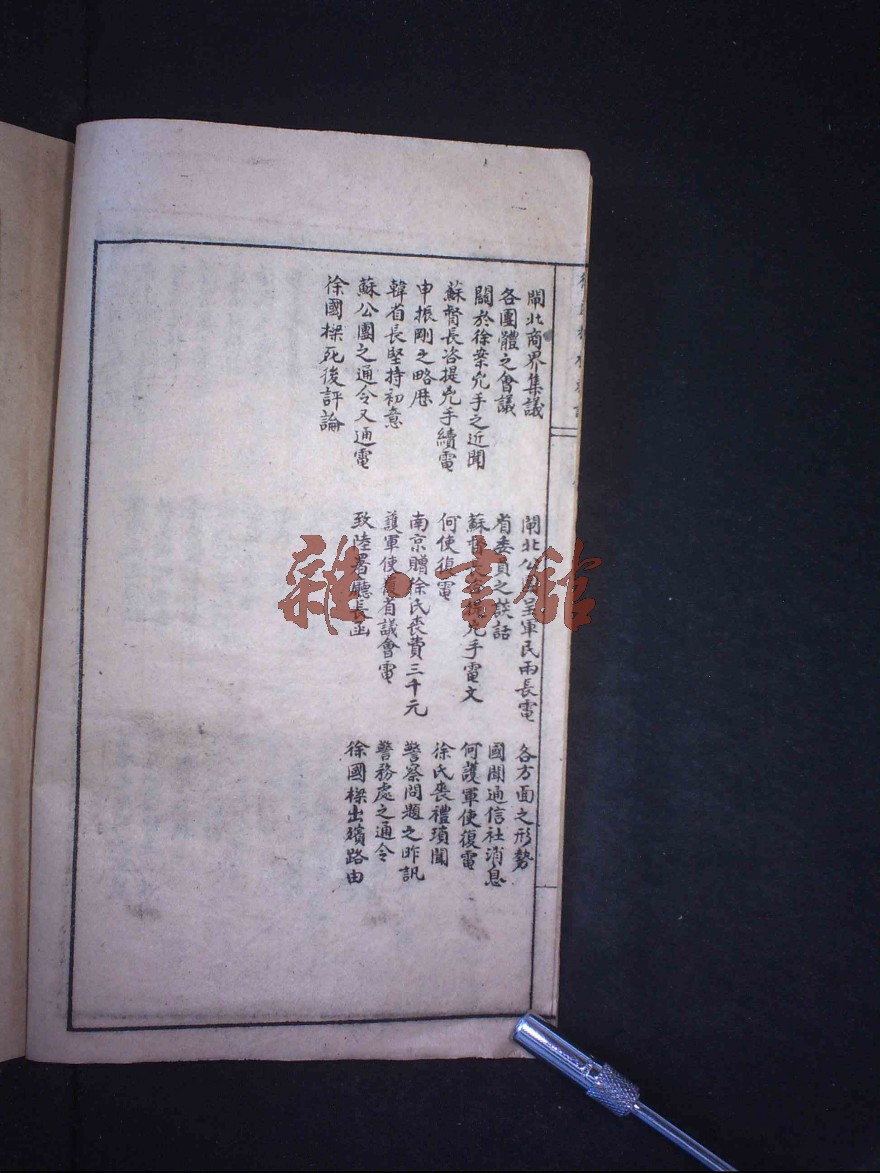 閘北商界集議
閘北公 呈軍民兩長電
各方面之形勢
各團體之會議
省委員之談話
國聞通信社消息
關於徐案兇手之近聞
蘇督長咨提兇手電文
何護軍使復電
蘇督長咨提兇手續電
何使復電
徐氏喪禮瑣聞
申振剛之略歷
南京贈徐氏喪費三千元
警察問題之昨訊
韓省長堅持初意
護軍使復省議會電
警務處之通令
蘇公團之通令又通電
致陸署廳長函
徐國樑出殯路由
徐國樑死後評論
雜·書館